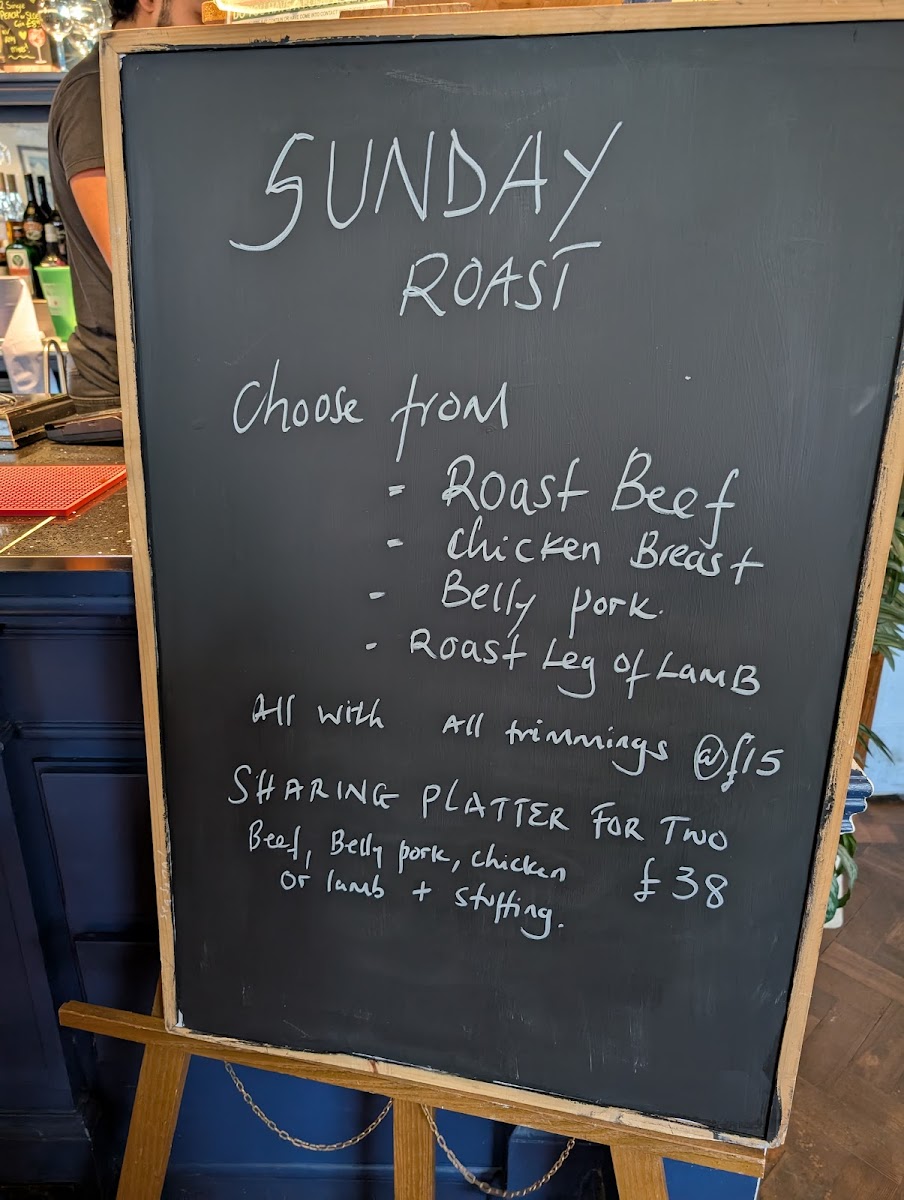 SUNDAY
ROAST
Choose from
- Roast Beef
- Chicken Breast
- Belly pork.
- Roast Leg of Lamb
All with All trimmings @£15
SHARING PLATTER FOR TWO
Beef, Belly pork, chicken £38
or lamb + stuffing.